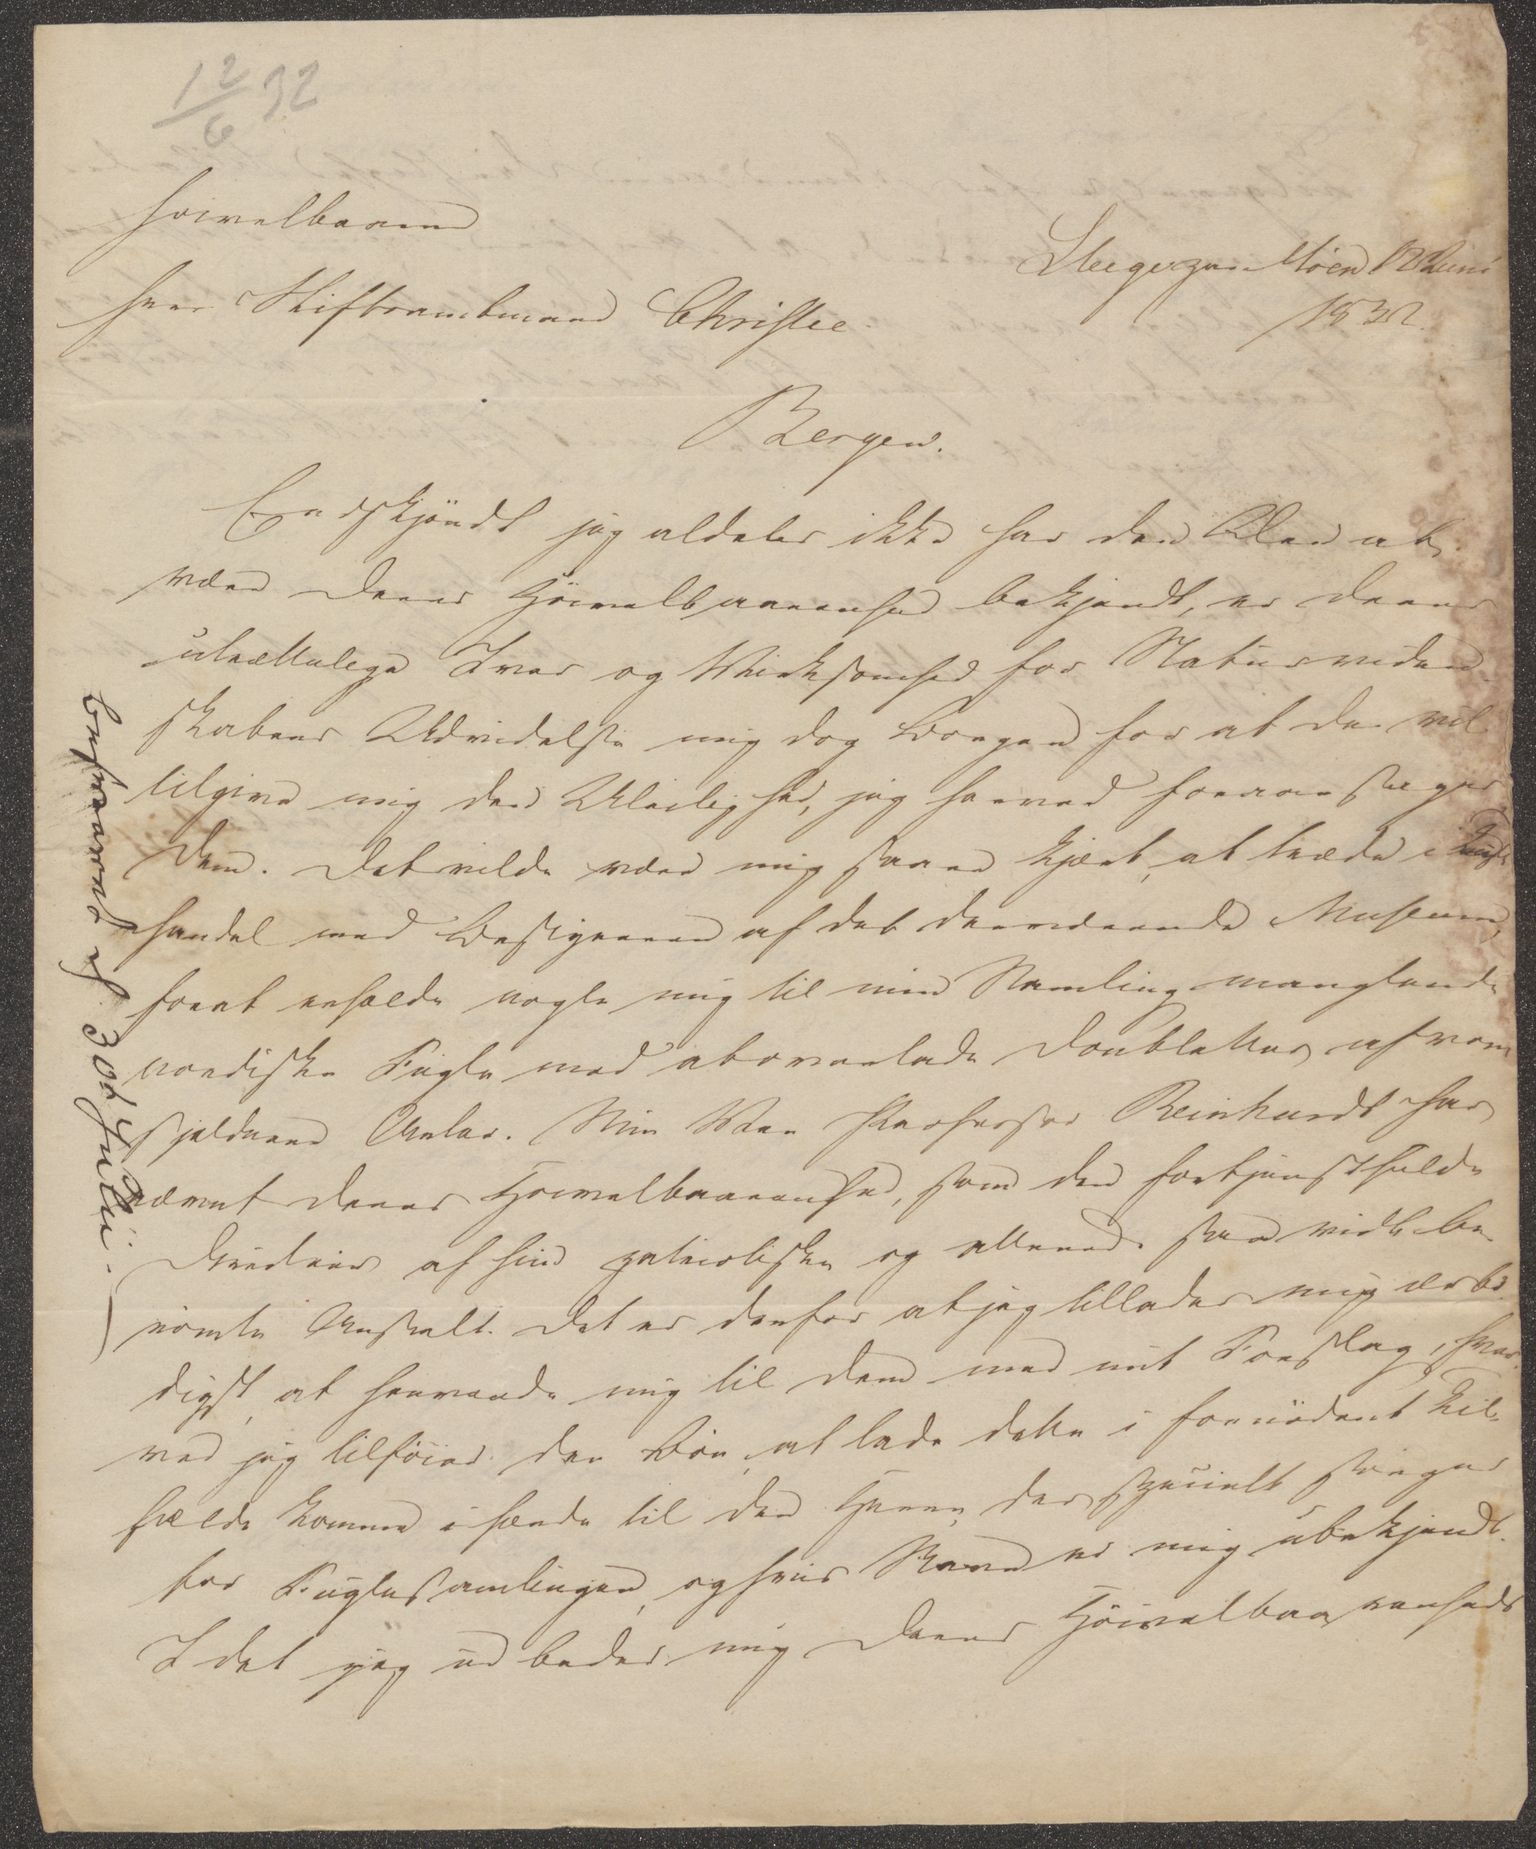 12/6 32
Høivelbaarne
Herr Stiftsamtmand Christie.
Steege paa Møen 12 Juni
1832.
Bergen.
Endskjöndt jeg aldeles ikke har den Ære at
være Deres Höivelbaarenhed bekjendt, er Deres
utrættelige Iver og Virksomhed for Naturviden-
skabens Udvidelse mig dog Borgen for at De vil
tilgive mig den Uleilighed, jeg herved foraarsager
Dem. Det vilde være mig saare kjært, at træde i Tusk-
handel med Bestyreren af det derværende Museum,
forat erholde nogle mig til min Samling manglende
nordiske Fugle mod at overlade Doubletter af vore
sjeldnere Arter. Min Ven Professor Reinhardt har
nævnt Deres Höivelbaarenhed, som den fortjenstfulde
Stifter af hin patriotiske og allerede saa vidt be-
römte Anstalt. Det er derfor at jeg tillader mig ærbö-
digst, at henvende mig til Dem med mit Forslag, hvor-
ved jeg tilföier den Bön, at lade dette i fornödent Til-
fælde komme ihænde til den Herre, der specielt sörger
for Fuglesamlingen, og hvis Navn er mig ubekjendt.
Idet jeg udbeder mig Deres Höivelbaarenheds
Besvaret d. 30d Julii.